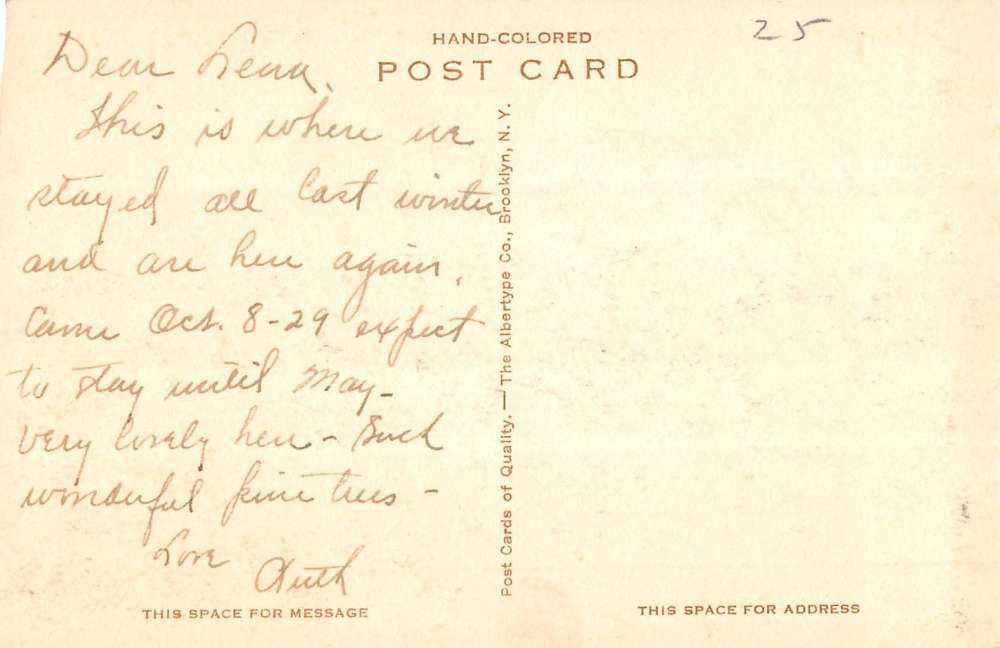 HAND-COLORED
POST CARD
25
Dear Lena,
This is where we
stayed all last winter
and are here again.
Came Oct. 8-29 expect
to stay until May-
very lovely here - Such
wonderful pine trees -
Love
Ruth
THIS SPACE FOR MESSAGE
Post Cards of Quality. — The Albertype Co., Brooklyn, N. Y.
THIS SPACE FOR ADDRESS